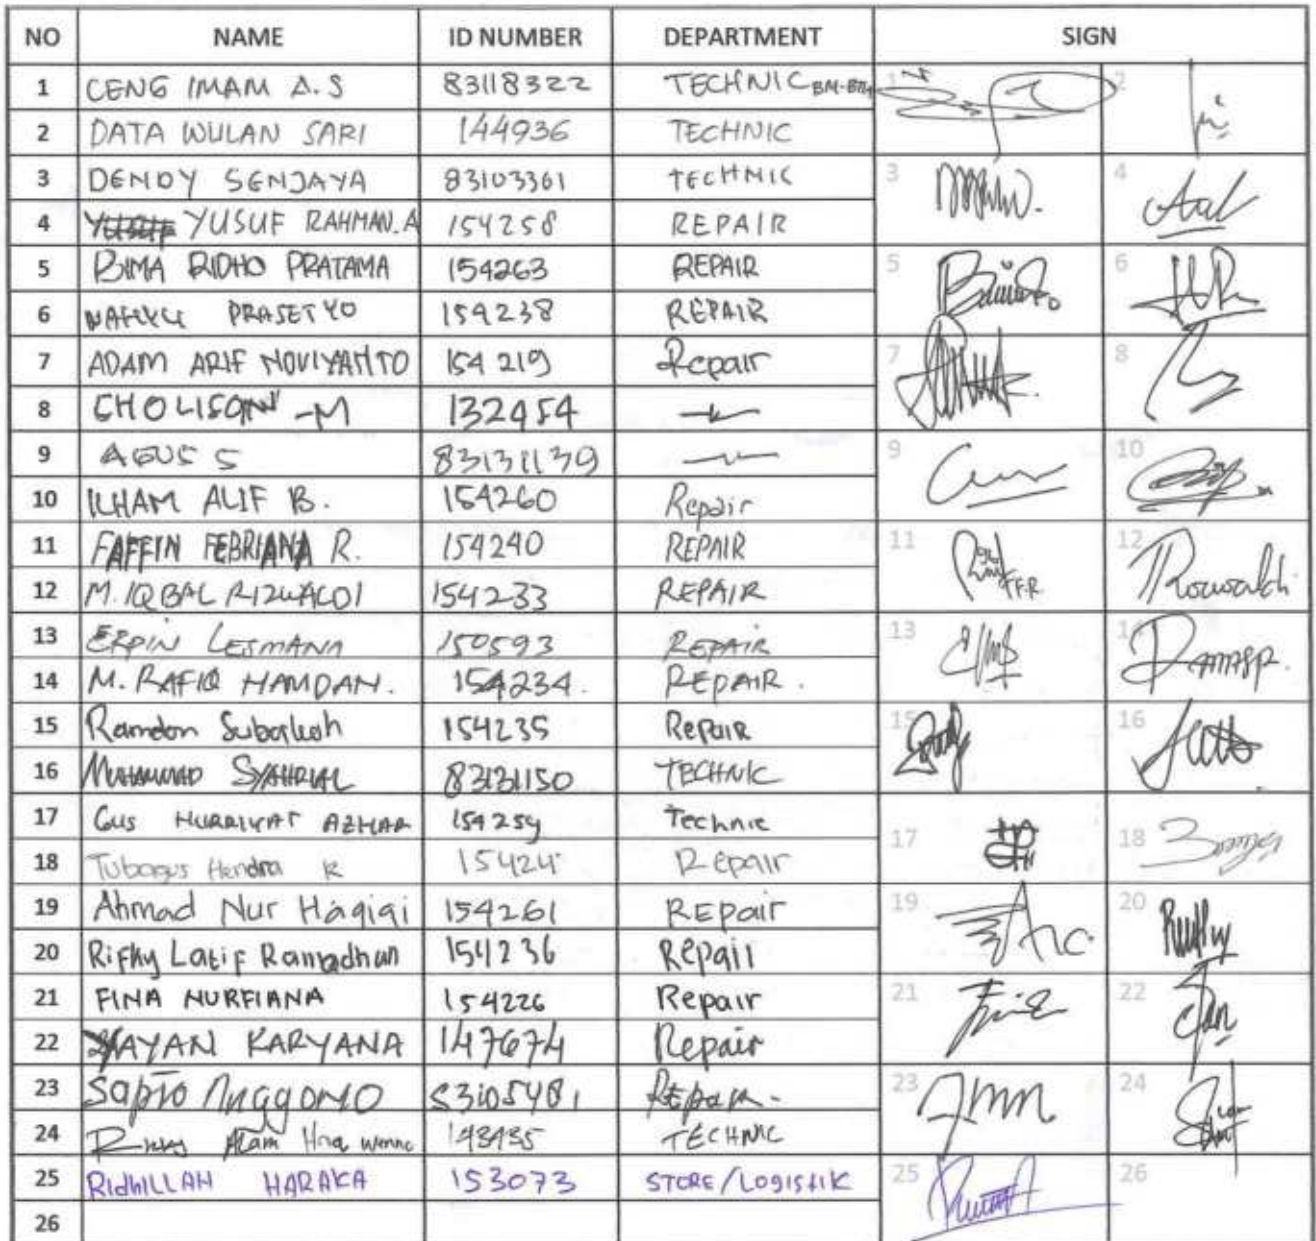 NO NAME ID NUMBER DEPARTMENT SIGN
1 CENG IMAM A.S 83118322 TECHNIC BM-BTH 1 2
2 DATA WULAN SARI 144936 TECHNIC
3 DENDY SENJAYA 83103361 TECHNIC 3 4
4 YUSUF RAHMAN.A 154258 REPAIR
5 BIMA RIDHO PRATAMA 154263 REPAIR 5 6
6 PRASETYO 154238 REPAIR
7 ADAM ARIF NOVIYANTO 154219 Repair 7 8
8 CHOLISON -M 132454
9 AGUS S 83131139 9 10
10 ILHAM ALIF B. 154260 Repair
11 FAFFIN FEBRIANA R. 154240 REPAIR 11 F.F.R. 12
12 M. IQBAL RIZWALDI 154233 REPAIR
13 ERPIN LESMANA 150593 REPAIR 13 14
14 M. RAFIQ HAMDAN. 154234. REPAIR.
15 Ramdon 154235 Repair 15 16
16 MUHAMMAD SYAHRIAL 83131150 TECHNIC
17 Gus HURRIYAT AZHAR 154259 Technic 17 18
18 Tubagus Hendra R 15424 Repair
19 Ahmad Nur Haqiqi 154261 REpair 19 20
20 Rifky Latif Ramadhan 154236 Repair
21 FINA NURFIANA 154226 Repair 21 22
22 YAYAN KARYANA 147674 Repair
23 Sapto Anggono 83105481 Repair. 23 24
24 Alam TECHNIC
25 RidhILLAH HARAKA 153073 STORE/LOGISTIK 25 26
26